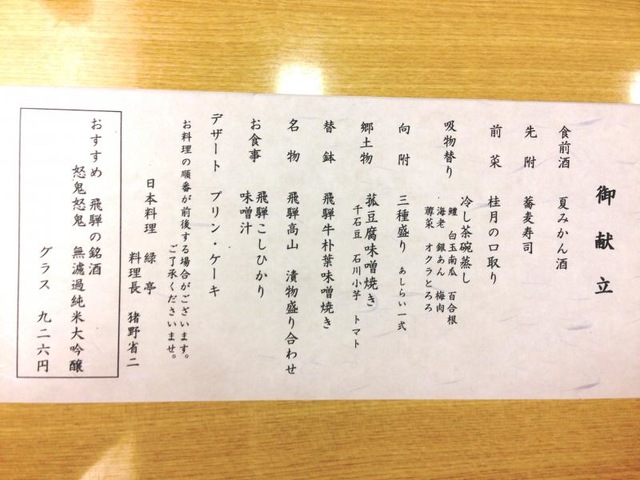 御献立
食前酒 夏みかん酒
先附 蕎麦寿司
前菜 桂月の口取り
吸物替り 冷し茶碗蒸し
鱧 白玉南瓜 百合根
海老 銀あん 梅肉
蓴菜 オクラとろろ
向附 三種盛り あしらい一式
郷土物 菰豆腐味噌焼き
千石豆 石川小芋 トマト
替鉢 飛騨牛朴葉味噌焼き
名物 飛騨高山 漬物盛り合わせ
お食事 飛騨こしひかり
味噌汁
デザート プリン・ケーキ
お料理の順番が前後する場合がございます。
ご了承くださいませ。
日本料理 緑亭
料理長 猪野省二
おすすめ 飛騨の銘酒
怒鬼怒鬼 無濾過純米大吟醸
グラス 九二六円